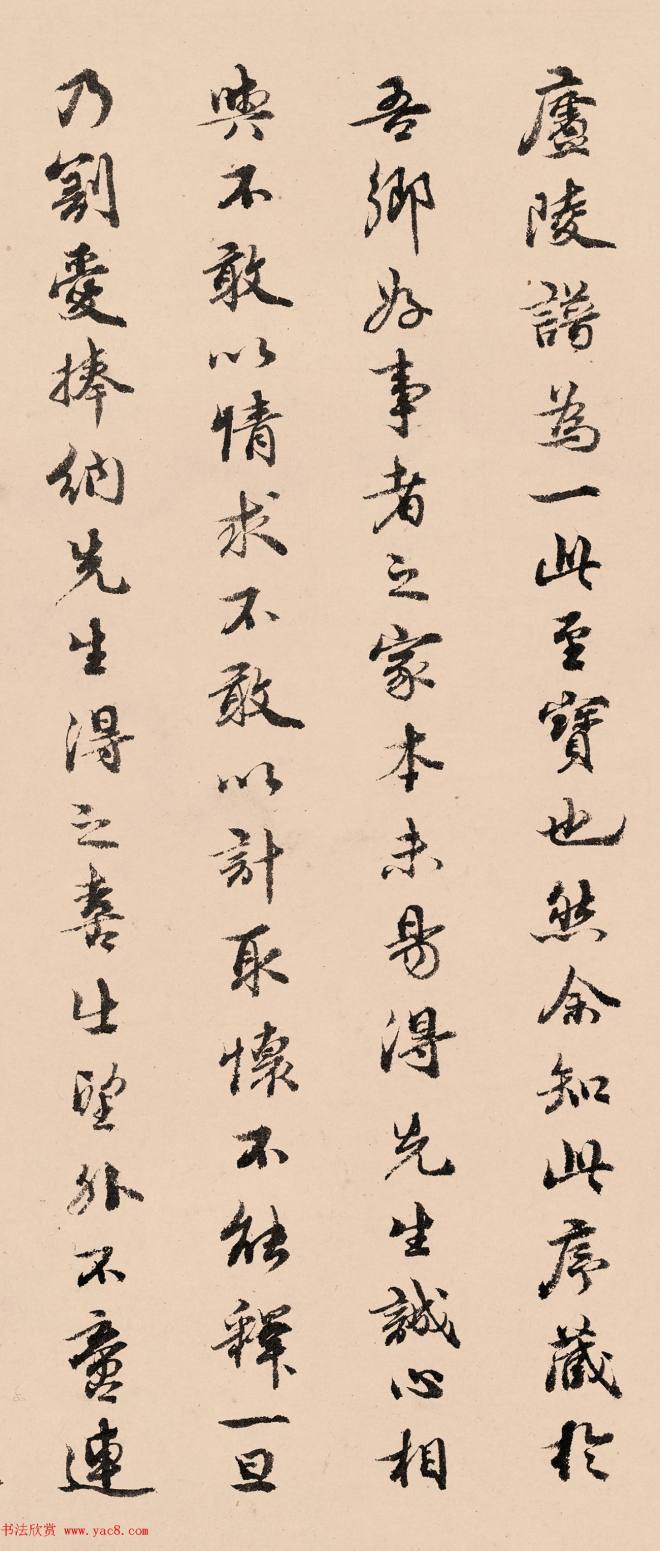 廬陵譜為一此至寶也然余知此序藏於
吾鄉好事者之家本未易得先生誠心相
與不敢以情求不敢以計取懷不能釋一旦
乃割愛捧納先生得之喜出望外不啻連
书法欣赏 www.yac8.com